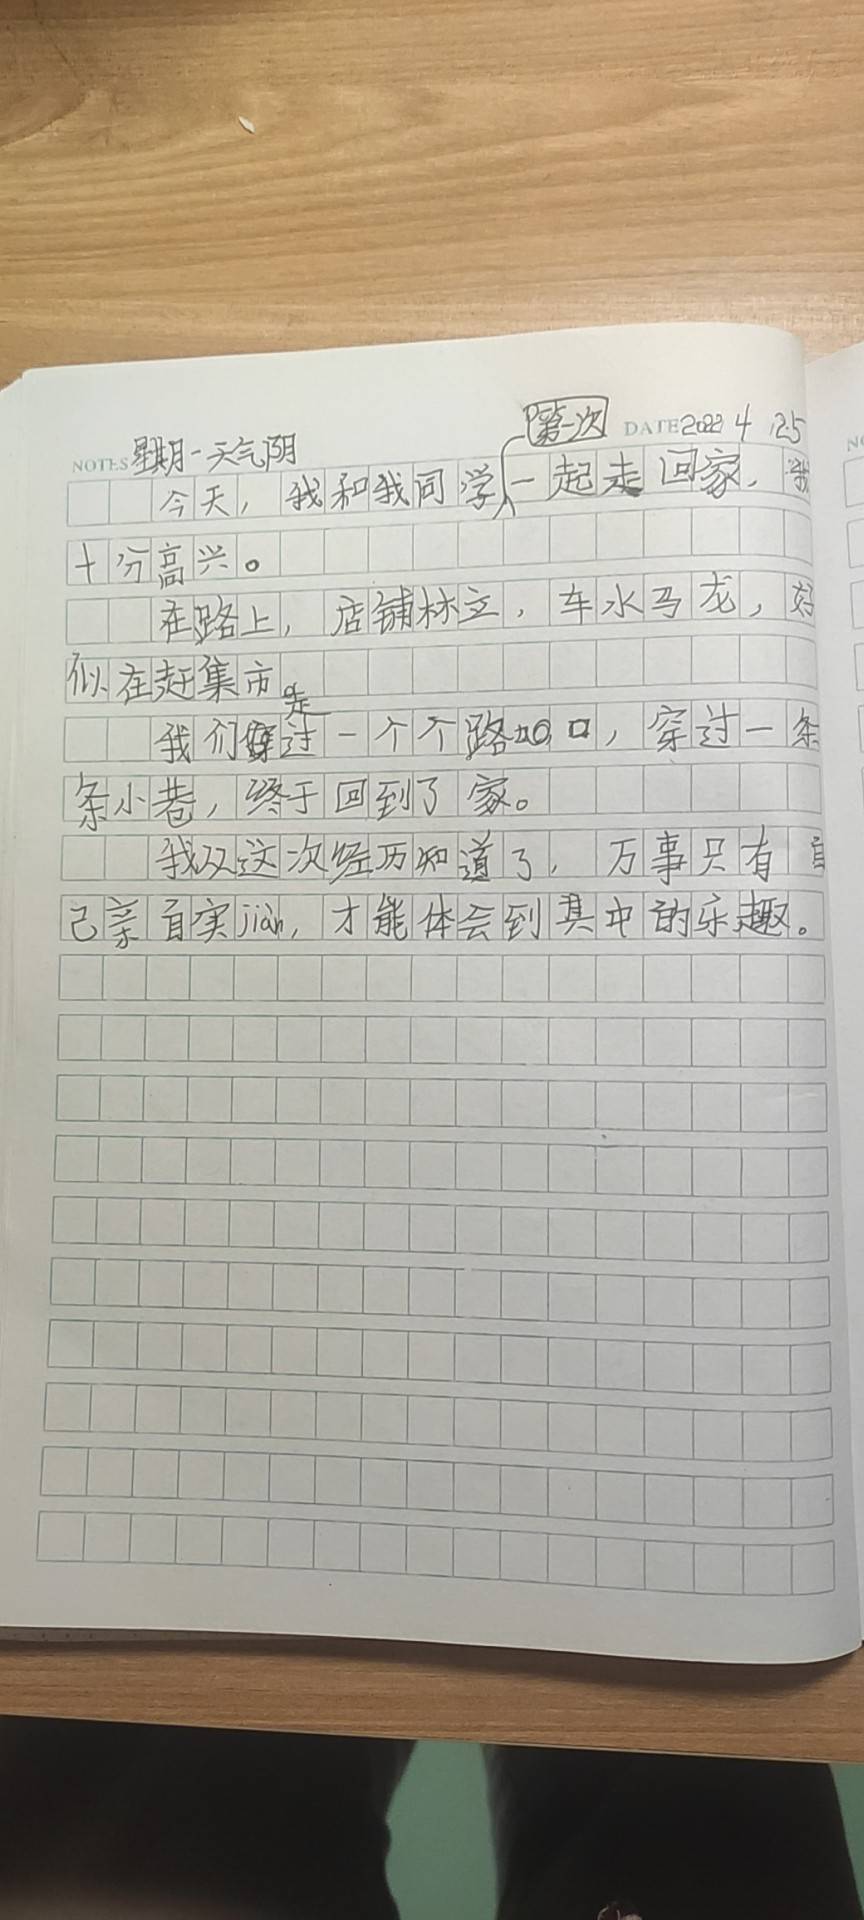 第一次
NOTES 星期一 天气阴 DATE 2022 4 25
今天，我和我同学一起走回家，我
十分高兴。
在路上，店铺林立，车水马龙，好
似在赶集市。
走
我们过一个个路口，穿过一条
条小巷，终于回到了家。
我从这次经历知道了，万事只有自
己亲自实jiàn，才能体会到其中的乐趣。